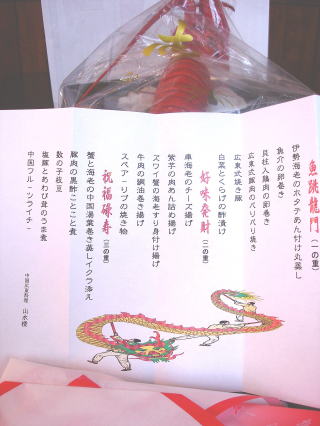 魚跳龍門（一の重）
伊勢海老のホタテあん付け丸蒸し
魚介の卵巻き
貝柱入鶏肉の卵巻き
広東式豚肉のパリパリ焼き
広東式焼き豚
白菜とくらげの酢漬け
好味発財（二の重）
車海老のチーズ揚げ
紫芋の肉あん詰め揚げ
ズワイ蟹の海老すり身付け揚げ
牛肉の網油巻き揚げ
スペアーリブの焼き物
祝福禄寿（三の重）
蟹と海老の中国湯葉巻き蒸しイクラ添え
豚肉の黒酢ことこと煮
数の子枝豆
塩豚とあわび茸のうま煮
中国フルーツライチー
中国広東料理 山水楼